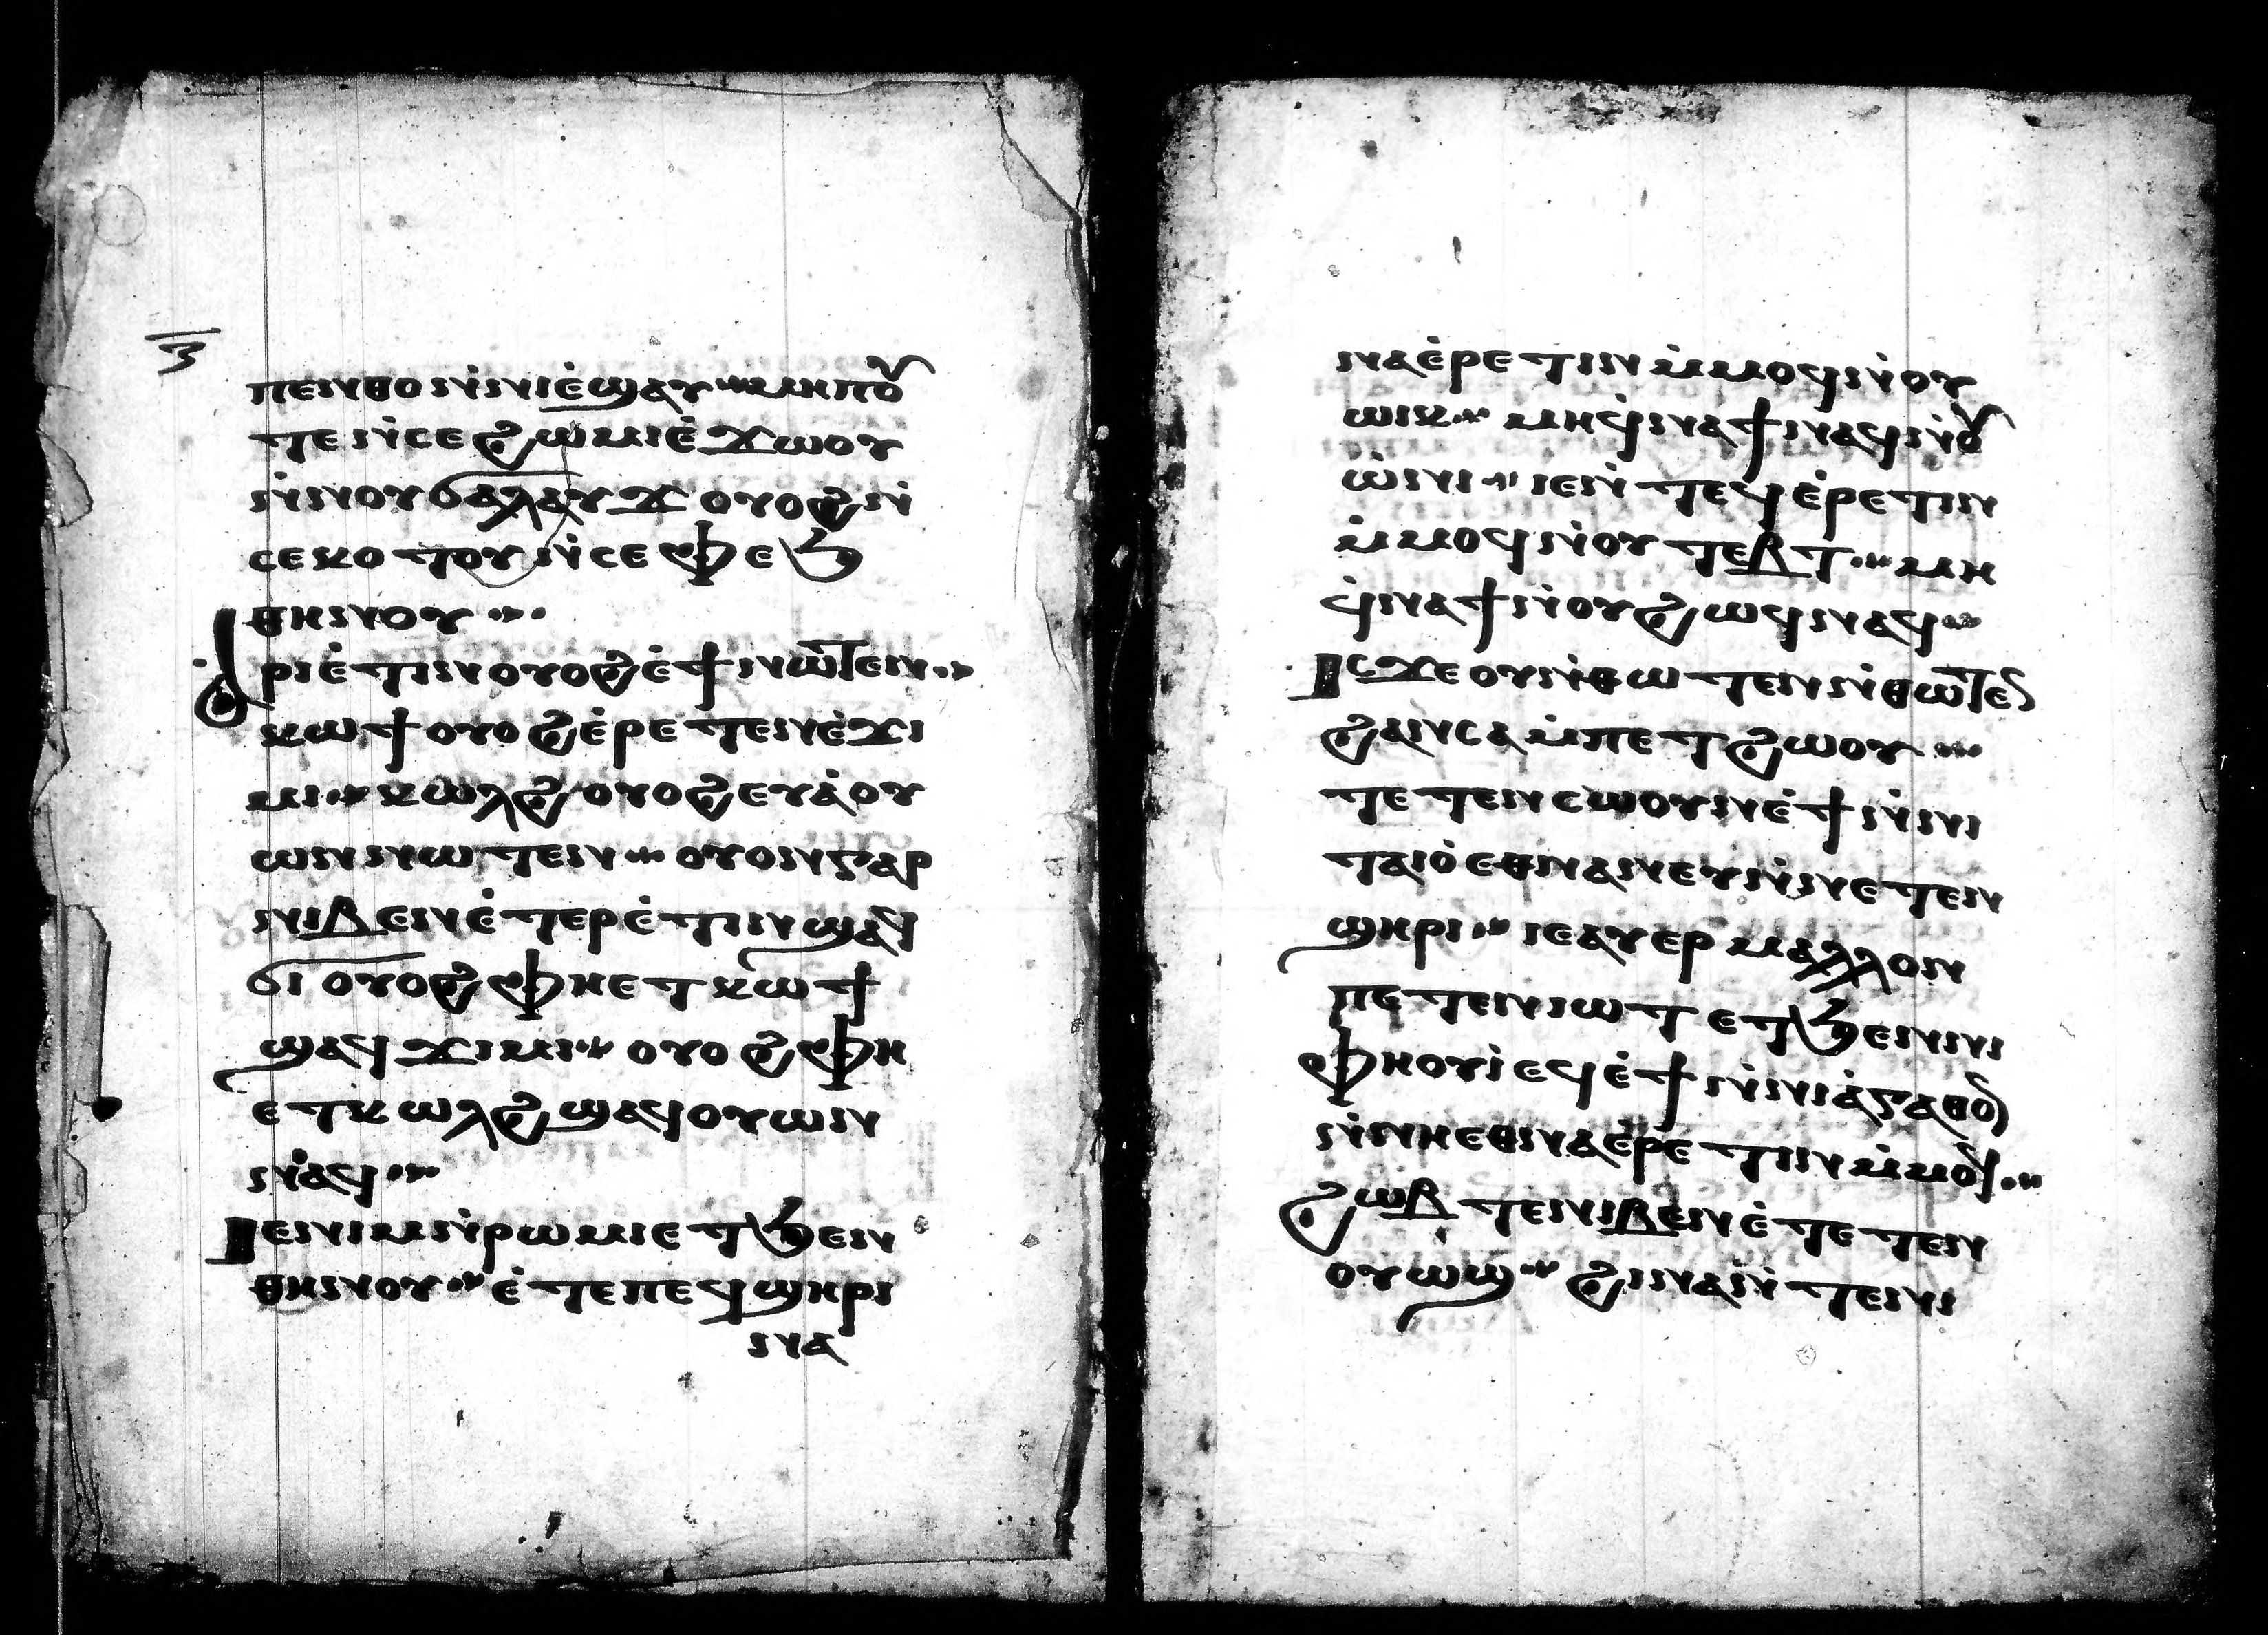 ⲡⲉⲛⲑⲟ ⲛ̇ⲛⲓⲉ̇ϣⲁⲩ ⲙⲏⲡⲟ
ⲧⲉ ⲛ̇ⲥⲉϩⲱⲙⲓ ⲉ̇ϫⲱⲟⲩ
ⲛ̇ⲛⲟⲩϭⲁⲗⲁⲩϫ ⲟⲩⲟϩ ⲛ̇
ⲥⲉⲕⲟⲧⲟⲩ ⲛ̇ⲥⲉⲫⲉϧ
ⲑⲏⲛⲟⲩ
ⲁⲣⲓⲉ̇ⲧⲓⲛ ⲟⲩⲟϩ ⲉ̇ϯ ⲛⲱⲧⲉⲛ
ⲕⲱϯ ⲟⲩⲟϩ ⲉ̇ⲣⲉⲧⲉⲛⲉ̇ϫⲓ
ⲙⲓ ⲕⲱⲗϩ ⲟⲩⲟϩ ⲉⲩⲁ̇ⲟⲩ
ⲱⲛ ⲛⲱⲧⲉⲛ ⲟⲩⲟⲛ ⲅⲁⲣ
ⲛⲓⲃⲉⲛ ⲉ̇ⲧⲉⲣⲉ̇ⲧⲓⲛ ϣⲁϥ
ϭⲓ ⲟⲩⲟϩ ⲫⲏ ⲉⲧⲕⲱϯ
ϣⲁϥϫⲓⲙⲓ ⲟⲩⲟϩ ⲫⲏ
ⲉⲧⲕⲱⲗϩ ϣⲁϥⲟⲩⲱⲛ
ⲛⲁϥ
ⲓⲉ ⲛⲓⲙ ⲛ̇ⲣⲱⲙⲓ ⲉⲧϧⲉⲛ
ⲑⲏⲛⲟⲩ ⲉ̇ⲧⲉ ⲡⲉϥϣⲏⲣⲓ
ⲛⲁ
ⲛⲁⲉ̇ⲣⲉⲧⲓⲛ ⲙ̇ⲙⲟϥ ⲛ̇ⲟⲩ
ⲱⲓⲕ ⲙⲏ ϥ̇ⲛⲁϯ ⲛⲁϥ ⲛ̇ⲟⲩ
ⲱ̇ⲛⲓ ⲓⲉ ⲛ̇ⲧⲉϥⲉ̇ⲣⲉⲧⲓⲛ
ⲙ̇ⲙⲟϥ ⲛ̇ⲟⲩⲧⲉⲃⲧ ⲙⲏ
ϥ̇ⲛⲁϯ ⲛ̇ⲟⲩϩⲱϥ ⲛⲁϥ
ⲓⲥϫⲉ ⲟⲩⲛ̇ ⲑⲱⲧⲉⲛ ⲛ̇ⲑⲱⲧⲉⲛ
ϩⲁⲛⲥⲁⲙ̇ⲡⲉⲧϩⲱⲟⲩ
ⲧⲉⲧⲉⲛⲥⲱⲟⲩⲛ ⲉ̇ϯ ⲛ̇ⲛⲓ
ⲧⲁⲓⲟ̇ ⲉⲑⲛⲁⲛⲉⲩ ⲛ̇ⲛⲉⲧⲉⲛ
ϣⲏⲣⲓ ⲓⲉ ⲁⲩⲉⲣ ⲙⲁⲗⲗⲟⲛ
ⲡⲉⲧⲉⲛⲓⲱⲧ ⲉⲧϧⲉⲛ ⲛⲓ
ⲫⲏⲟⲩⲓ̇ ⲉϥⲉ̇ϯ ⲛ̇ⲛⲓⲁ̇ⲅⲁⲑⲟⲛ
ⲛ̇ⲛⲏ ⲉⲑⲛⲁⲉ̇ⲣⲉⲧⲓⲛ ⲙ̇ⲙⲟϥ
ϩⲱⲃ ⲧⲉⲛⲓⲃⲉⲛ ⲉ̇ⲧⲉⲧⲉⲛ
ⲟⲩⲱϣ ϩⲓⲛⲁ ⲛ̇ⲧⲉ ⲛⲓ